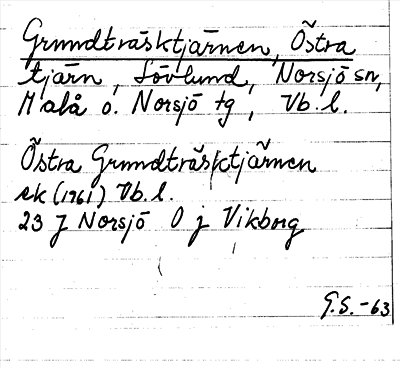 Grundträsktjärnen, Östra
tjärn, Lövlund, Norsjö sn,
Malå o. Norsjö tg, Vb. l.
Östra Grundträsktjärnen
ek (1961) Vb. l.
23 J Norsjö O j Vikborg
G.S. -63